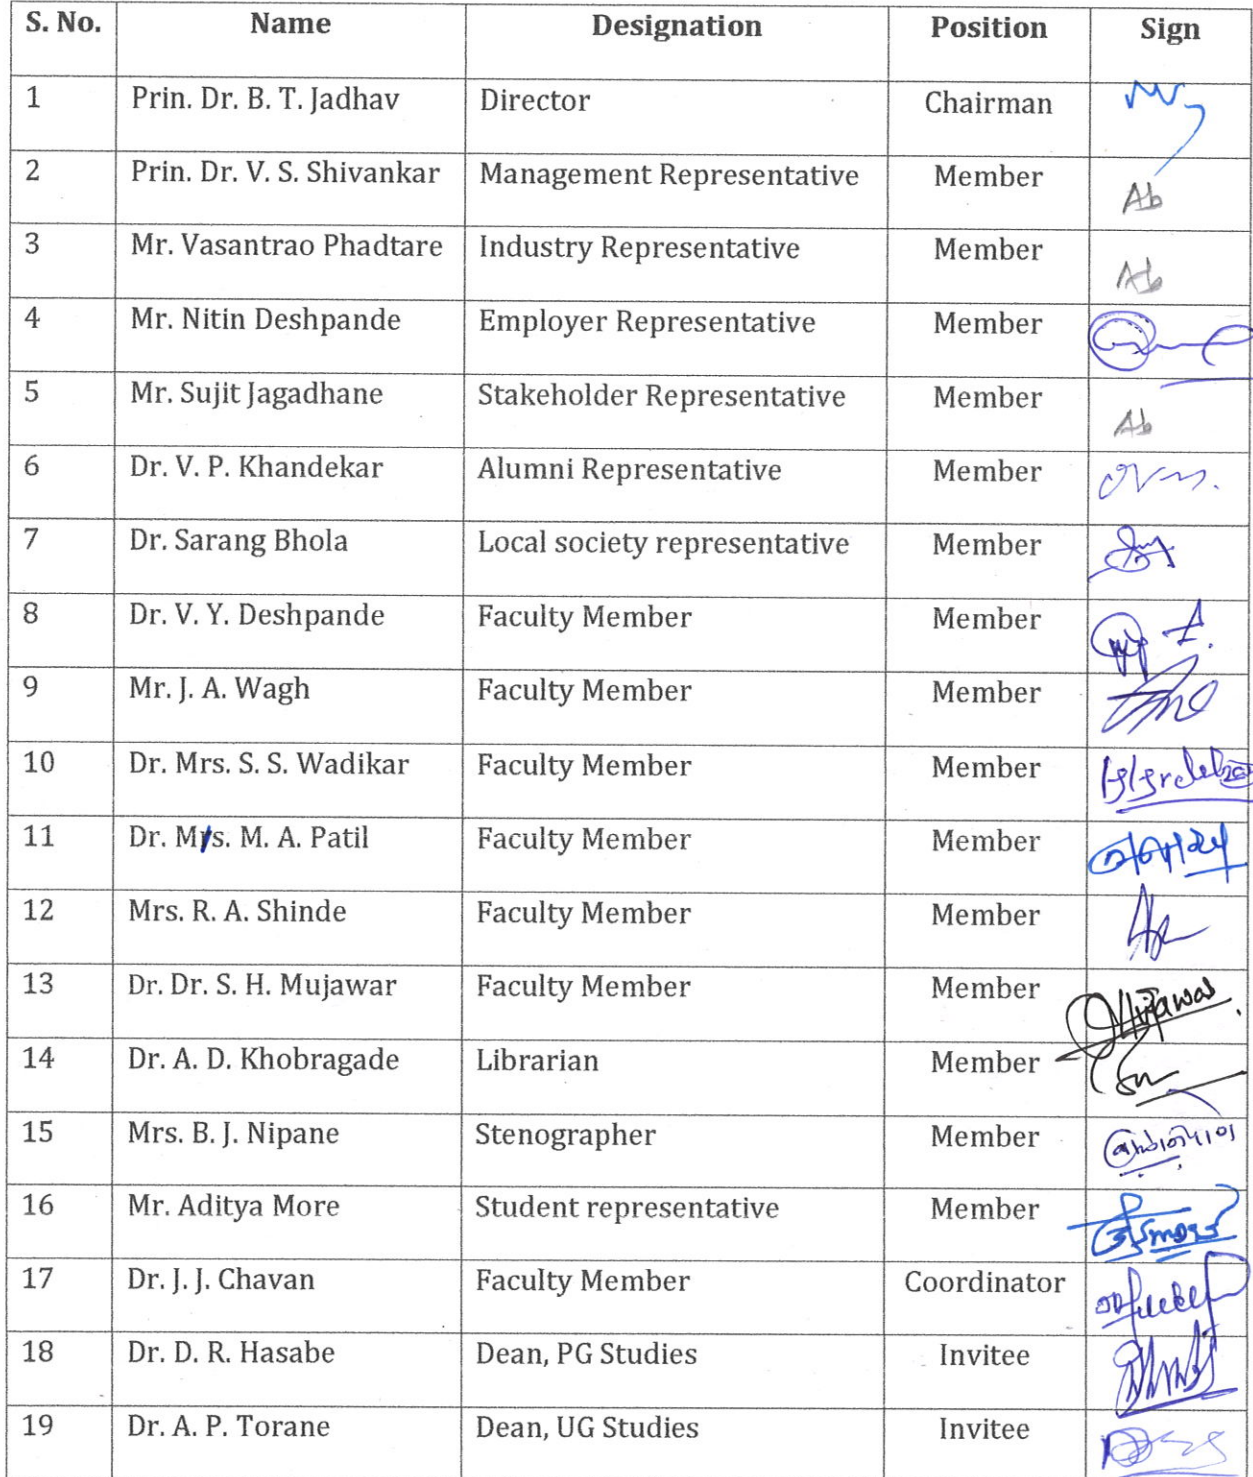 S. No. Name Designation Position Sign
1 Prin. Dr. B. T. Jadhav Director Chairman
2 Prin. Dr. V. S. Shivankar Management Representative Member Ab
3 Mr. Vasantrao Phadtare Industry Representative Member Ab
4 Mr. Nitin Deshpande Employer Representative Member
5 Mr. Sujit Jagadhane Stakeholder Representative Member Ab
6 Dr. V. P. Khandekar Alumni Representative Member
7 Dr. Sarang Bhola Local society representative Member
8 Dr. V. Y. Deshpande Faculty Member Member
9 Mr. J. A. Wagh Faculty Member Member
10 Dr. Mrs. S. S. Wadikar Faculty Member Member
11 Dr. Mrs. M. A. Patil Faculty Member Member
12 Mrs. R. A. Shinde Faculty Member Member
13 Dr. Dr. S. H. Mujawar Faculty Member Member Mujawar
14 Dr. A. D. Khobragade Librarian Member
15 Mrs. B. J. Nipane Stenographer Member
16 Mr. Aditya More Student representative Member
17 Dr. J. J. Chavan Faculty Member Coordinator
18 Dr. D. R. Hasabe Dean, PG Studies Invitee
19 Dr. A. P. Torane Dean, UG Studies Invitee